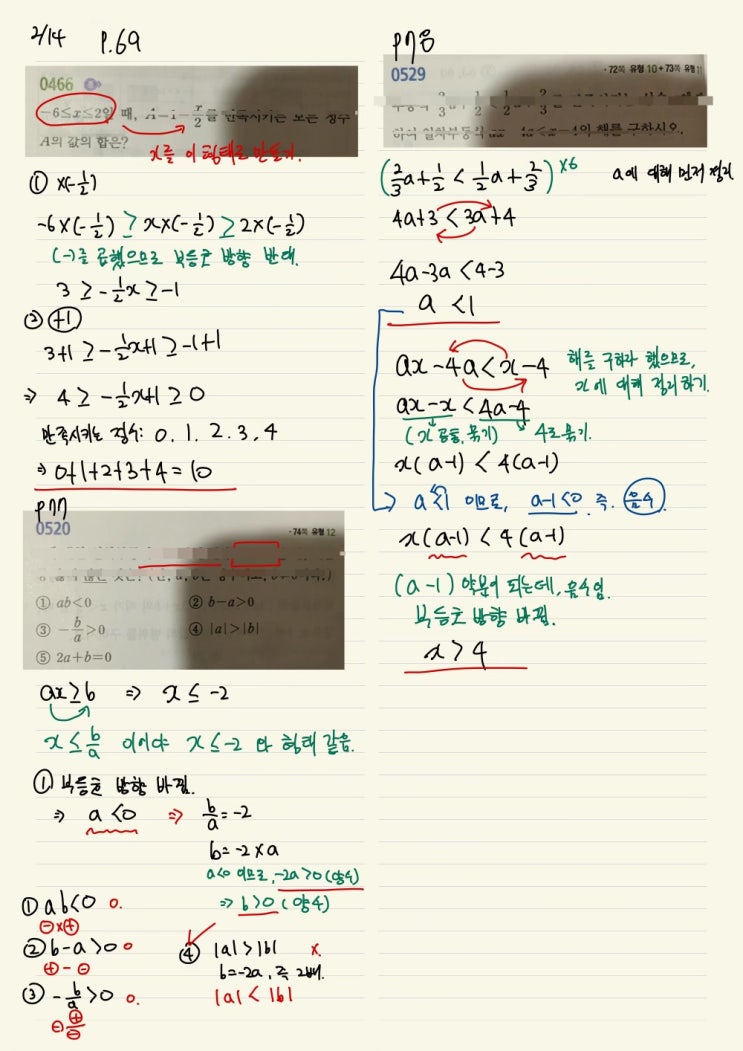 2/14 P.69
0466
-6≤x≤2일 때, A=1-x/2를 만족시키는 모든 정수
A의 값의 합은?
x를 이 형태로 만들기.
① ×(-1/2)
-6×(-1/2) ≥ x×(-1/2) ≥ 2×(-1/2)
(-)를 곱했으므로 부등호 방향 반대.
3 ≥ -1/2x ≥ -1
② +1
3+1 ≥ -1/2x+1 ≥ -1+1
⇒ 4 ≥ -1/2x+1 ≥ 0
만족시키는 정수: 0, 1, 2, 3, 4
⇒ 0+1+2+3+4=10
P77
0520
·74쪽 유형 12
① ab<0 ② b-a>0
③ -b/a>0 ④ |a|>|b|
⑤ 2a+b=0
ax≥b ⇒ x≤-2
x≤b/a 이어야 x≤-2 와 형태 같음.
① 부등호 방향 바뀜.
⇒ a<0 ⇒ b/a=-2
b=-2×a
a<0 이므로, -2a>0 (양수)
⇒ b>0 (양수)
① ab<0 o.
⊖×⊕
② b-a>0 o
⊕-⊖
③ -b/a>0 o.
⊖⊕/⊖
④ |a|>|b| x.
b=-2a, 즉 2배.
|a|<|b|
P78
0529
·72쪽 유형 10+73쪽 유형 11
(2/3a+1/2 < 1/2a+2/3)×6 a에 대해 먼저 정리
4a+3<3a+4
4a-3a<4-3
a<1
ax-4a<x-4
해를 구하라 했으므로,
x에 대해 정리하기.
ax-x<4a-4
(x 공통, 묶기) 4로 묶기.
x(a-1)<4(a-1)
a<1 이므로, a-1<0. 즉. 음수.
x(a-1)<4(a-1)
(a-1) 약분이 되는데, 음수임.
부등호 방향 바뀜.
x>4